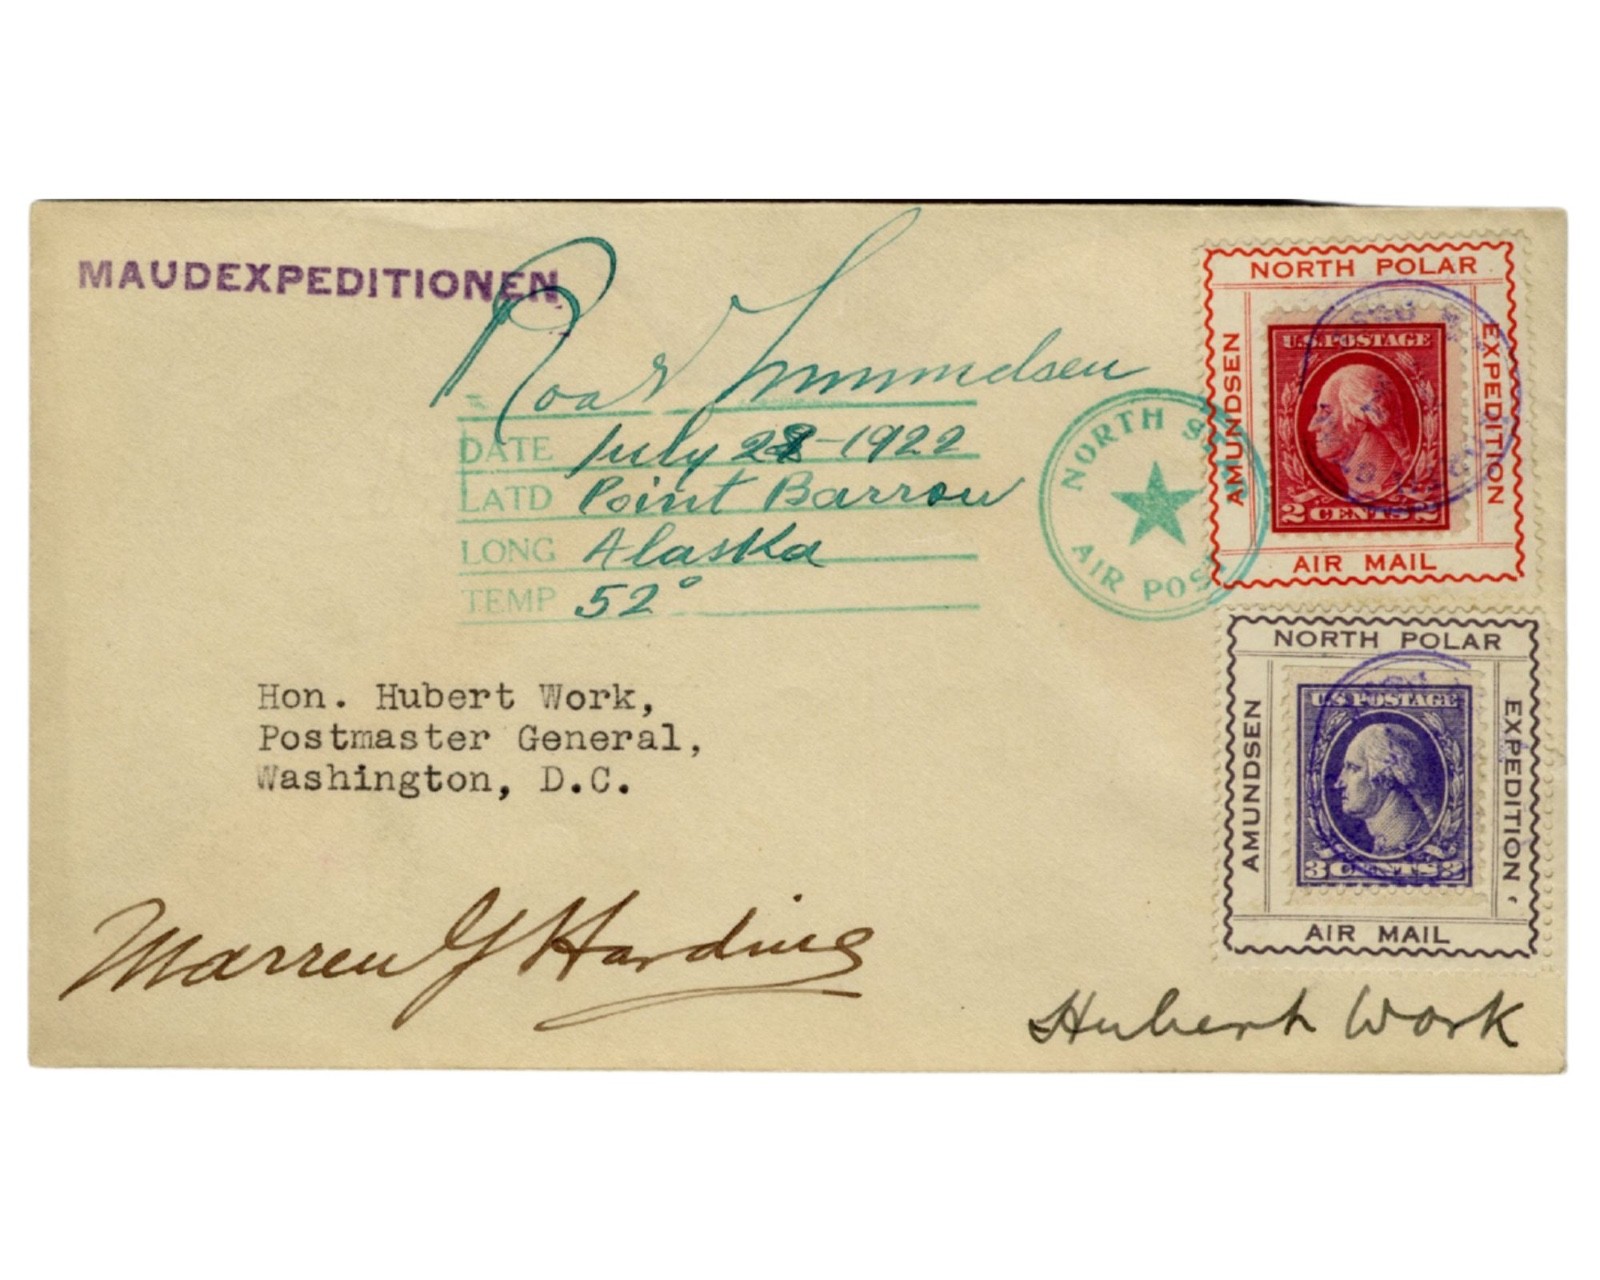 MAUDEXPEDITIONEN
Roald Amundsen
DATE July 28-1922
LATD Point Barrow
LONG Alaska
TEMP 52°
NORTH STAR
AIR POST
NORTH POLAR
AMUNDSEN
EXPEDITION
U.S. POSTAGE
2 CENTS 2
AIR MAIL
NORTH POLAR
AMUNDSEN
EXPEDITION
U.S. POSTAGE
3 CENTS 3
AIR MAIL
Hon. Hubert Work,
Postmaster General,
Washington, D.C.
Warren G Harding
Hubert Work